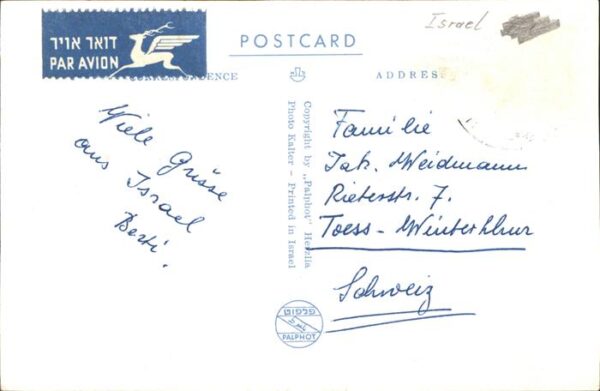 דואר אויר
PAR AVION
POSTCARD
Israel
CORRESPONDENCE
ADDRES
Viele Grüsse
aus Israel
Berti.
Copyright by „Palphot" Herzlia
Photo Kalter – Printed in Israel
Familie
Jak. Weidmann
Rieterstr. 7.
Toess-Winterthur
Schweiz
פלפוט
PALPHOT